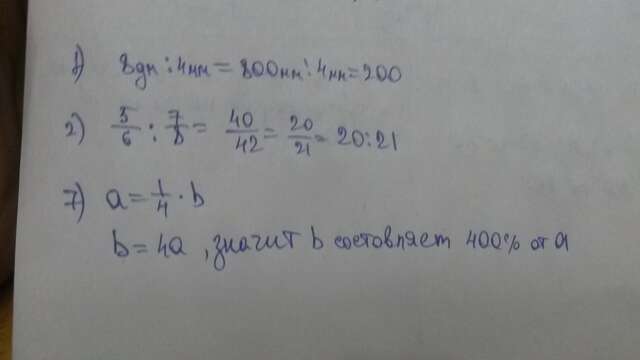 1) 8дм : 4мм = 800мм : 4мм = 200
2) 5/6 : 7/8 = 40/42 = 20/21 = 20:21
7) a = 1/4 · b
b = 4a , значит b состовляет 400% от a